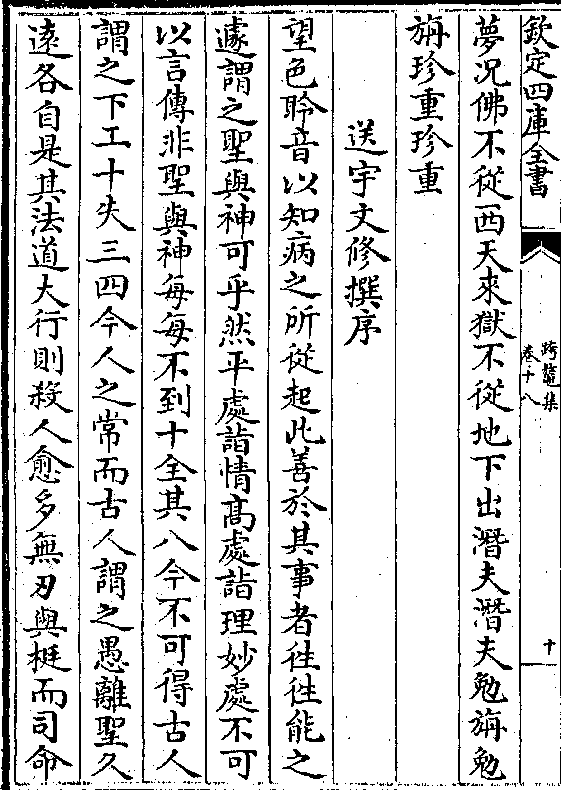 欽定四庫全書
跨鼇集
卷十八
十
夢況佛不從西天來獄不從地下出潛夫潛夫勉旃勉
旃珍重珍重
送宇文修撰序
望色聆音以知病之所從起此善於其事者徃徃能之
遽謂之聖與神可乎然平處詣情髙處詣理妙處不可
以言傳非聖與神每每不到十全其八今不可得古人
謂之下工十失三四今人之常而古人謂之愚離聖久
逺各自是其法道大行則殺人愈多無刃與梃而司命